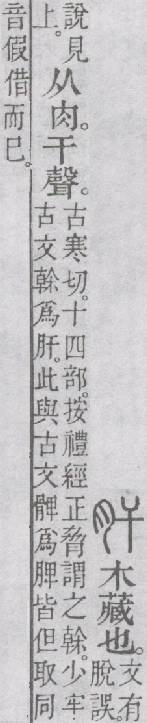 肝木藏也。文有
脫誤。
說見
上。
从肉。干聲。
古寒切。十四部。按禮經正脅謂之榦。少牢
古文榦爲肝。此與古文髀爲脾皆但取同
音假借而已。